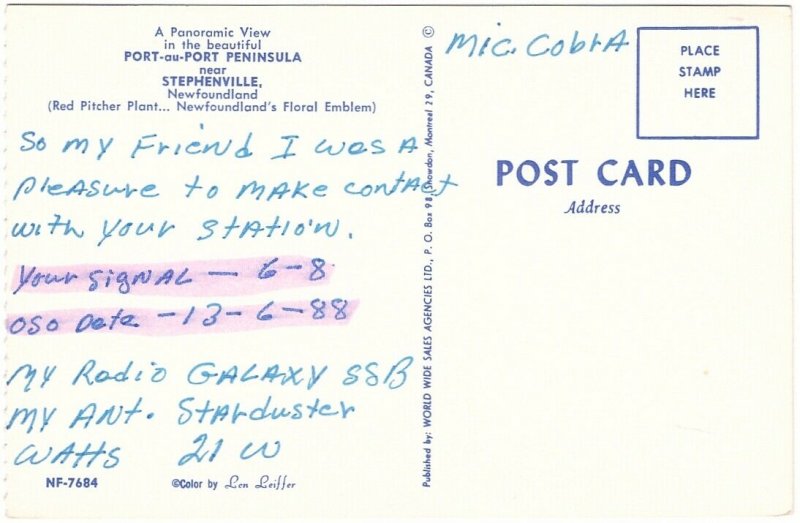 A Panoramic View
in the beautiful
PORT-au-PORT PENINSULA
near
STEPHENVILLE,
Newfoundland
(Red Pitcher Plant... Newfoundland's Floral Emblem)
So my Friend I was A
pleAsure to mAke contAct
with your stAtion.
Your SigNAL — 6-8
OSO Date - 13-6-88
My Radio GALAXY SSB
My ANt. StArduster
WAtts 21 W
NF-7684 ©Color by Len Leiffer
Published by: WORLD WIDE SALES AGENCIES LTD., P. O. Box 98, Snowdon, Montreal 29, CANADA ©
Mic. CobrA
PLACE
STAMP
HERE
POST CARD
Address